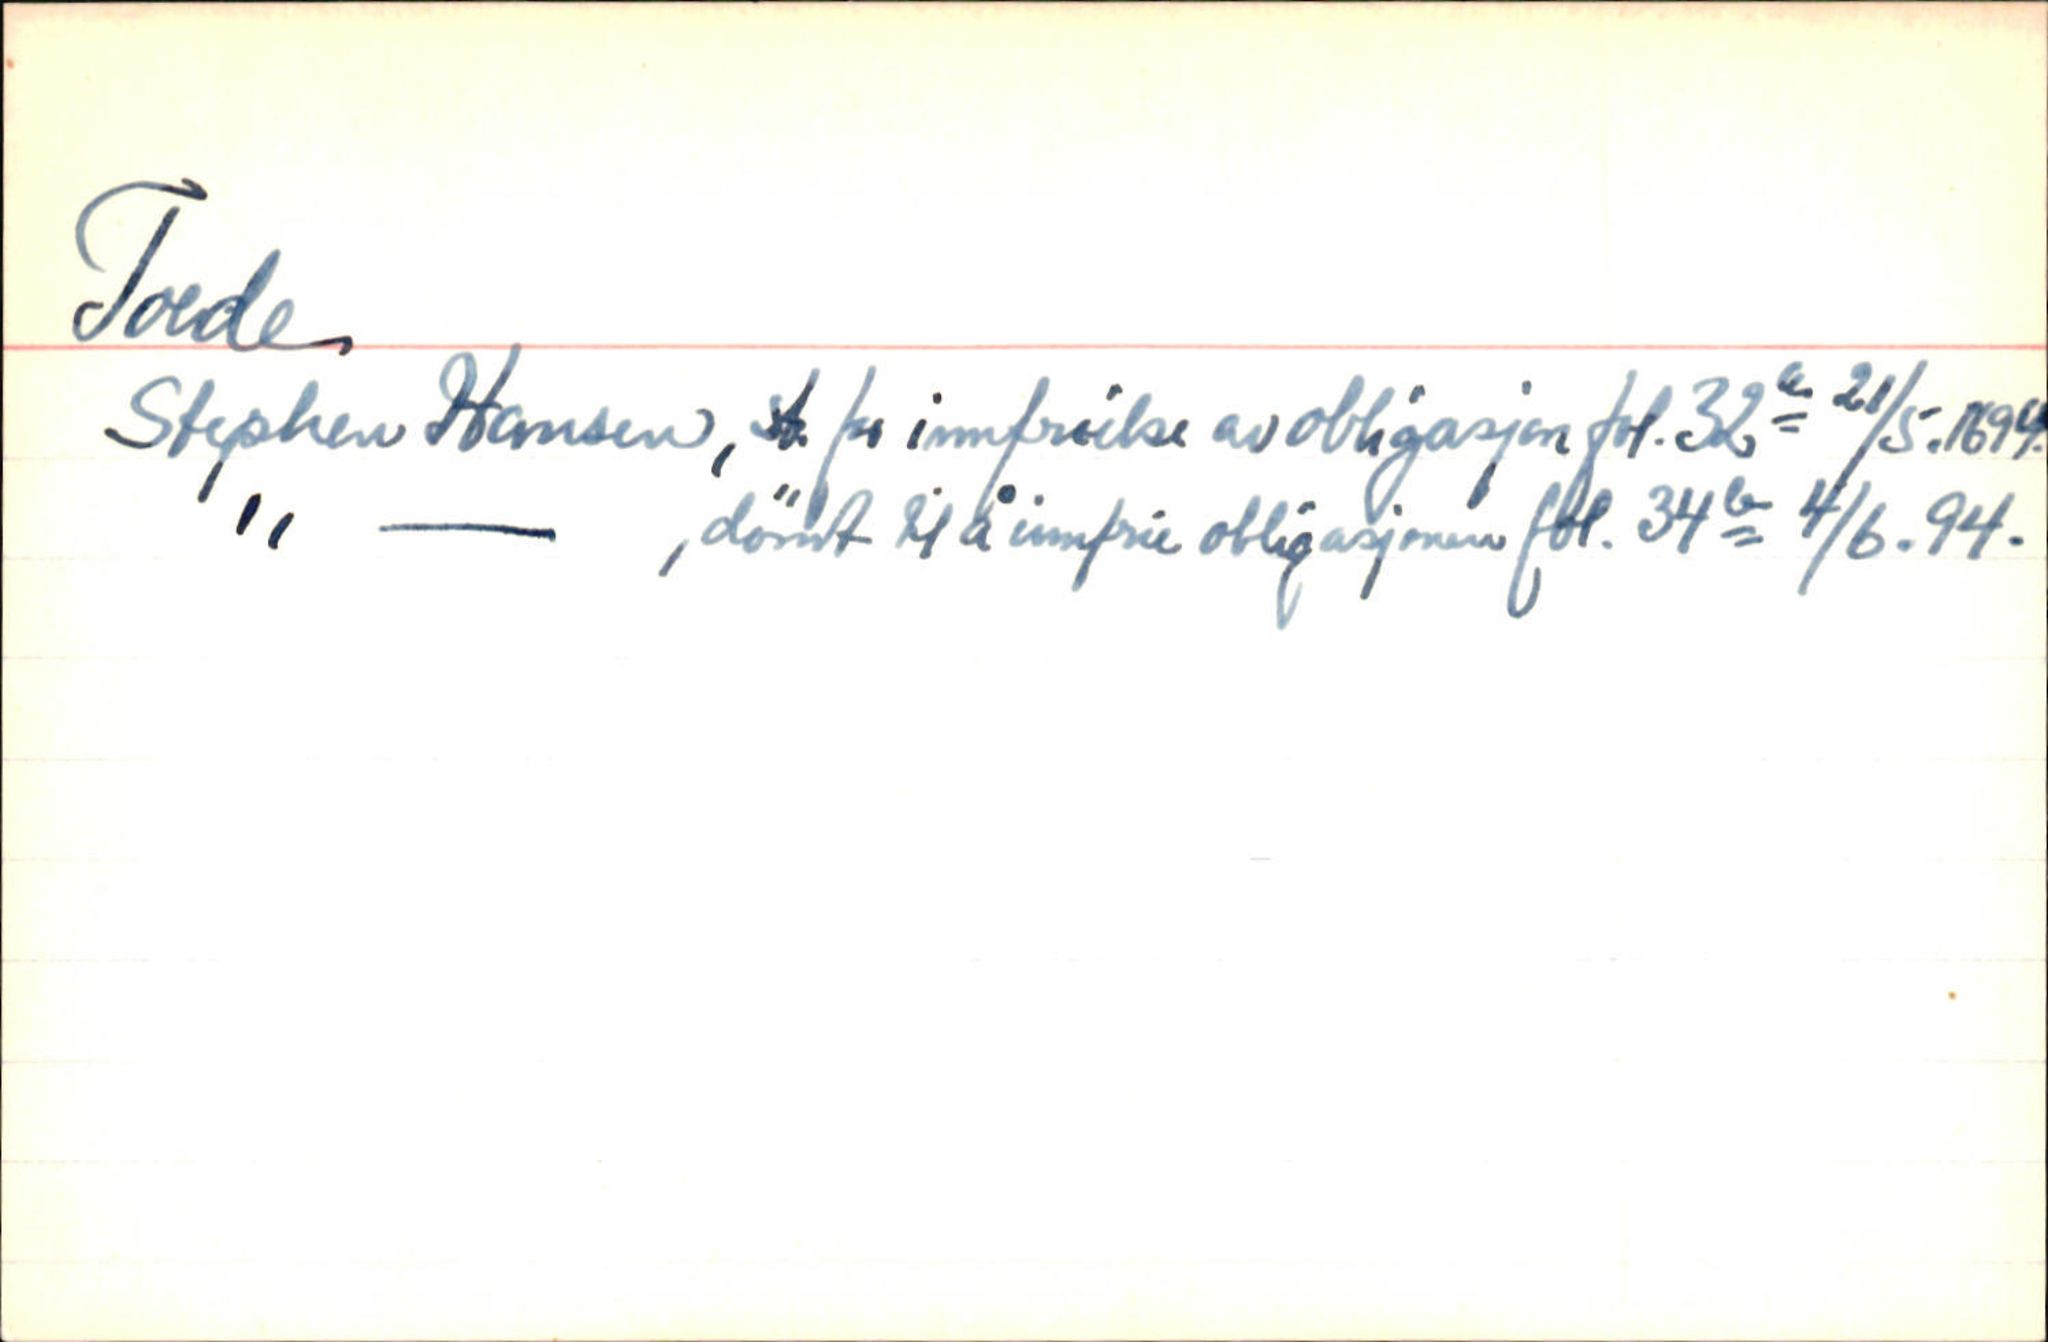 Toede
Stephen Hansen, st. for innfrielse av obligasjon fol. 32a 21/5. 1694.
" — , dömt til å innfrie obligasjonen fol. 34b 4/6. 94.